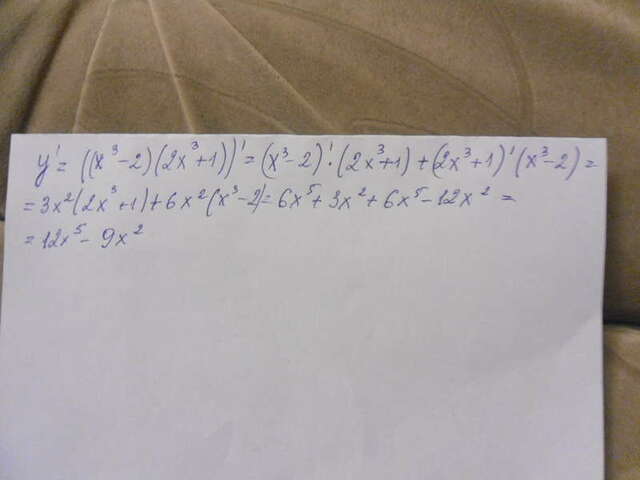 y' = ((x³-2)(2x³+1))' = (x³-2)'·(2x³+1)+(2x³+1)'(x³-2) =
= 3x²(2x³+1)+6x²(x³-2)= 6x⁵+3x²+6x⁵-12x² =
= 12x⁵-9x²